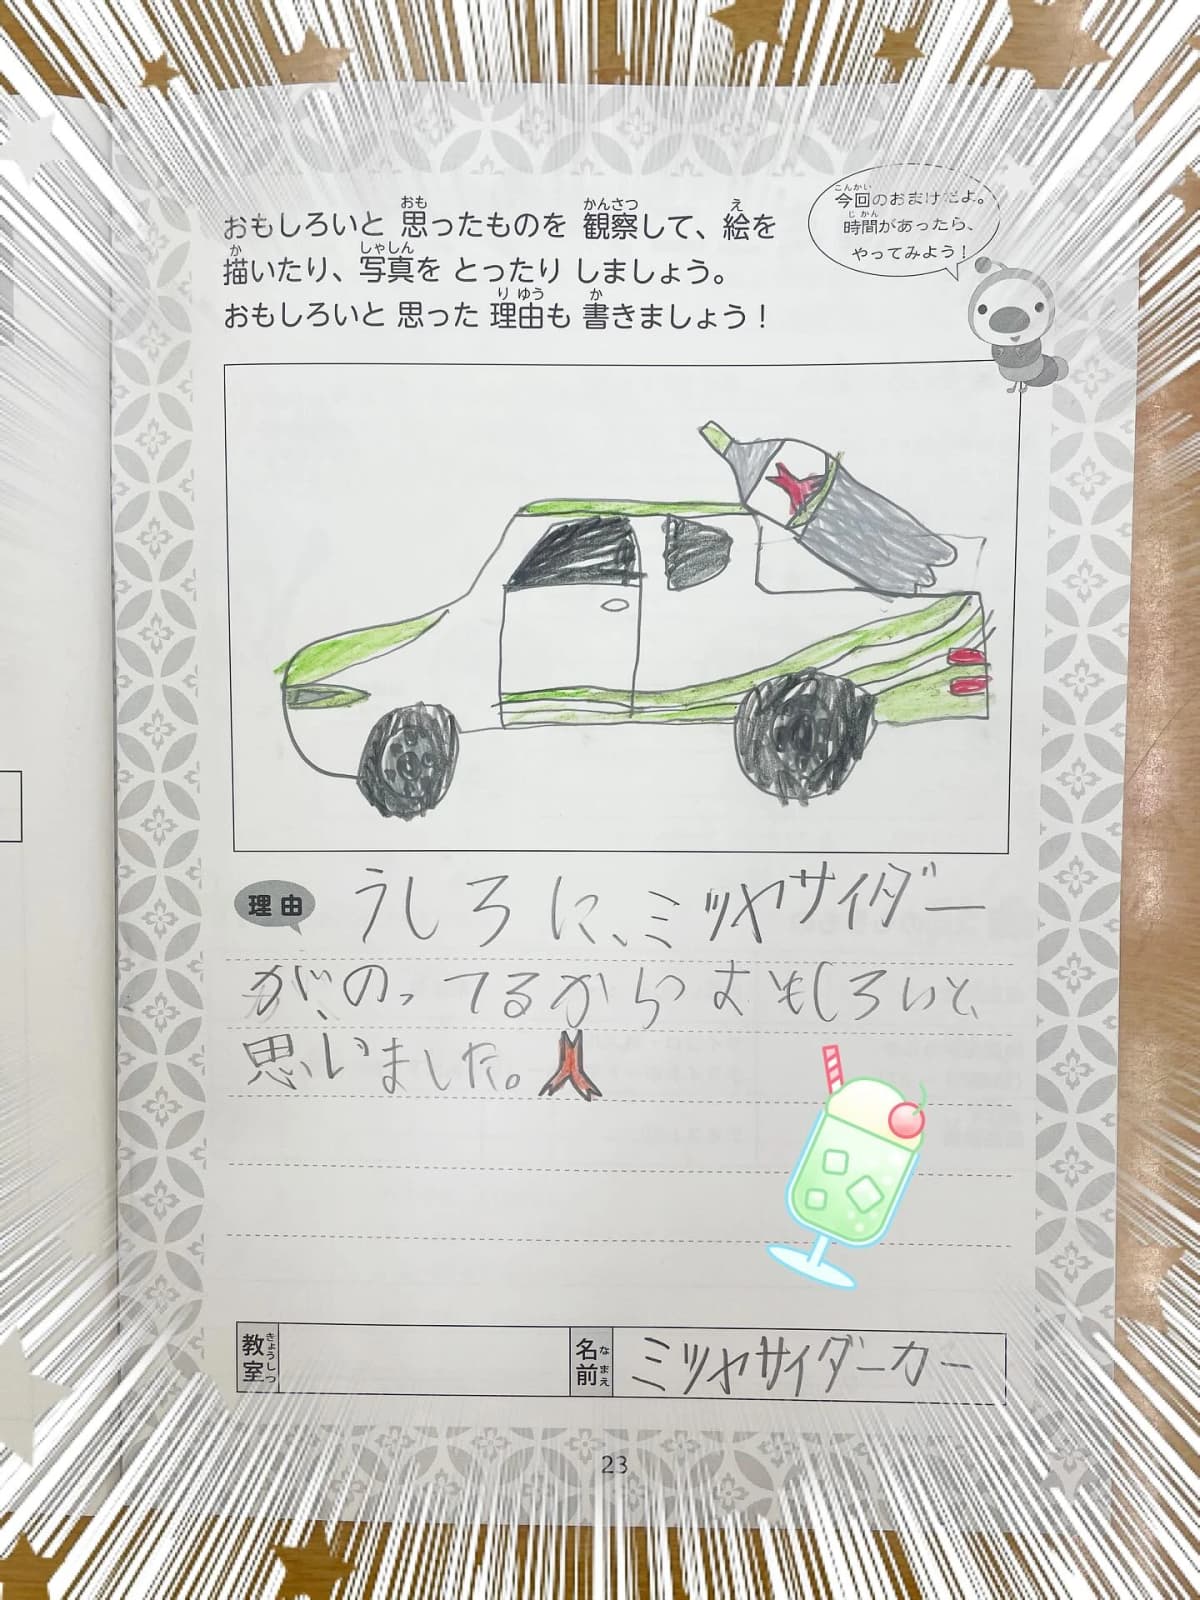 おもしろいと 思ったものを 観察して、絵を
描いたり、写真を とったり しましょう。
おもしろいと 思った 理由も 書きましょう！
今回のおまけだよ。
時間があったら、
やってみよう！
理由
うしろに、ミツヤサイダー
がのってるからおもしろいと、
思いました。
教室
名前
ミツヤサイダーカー
23